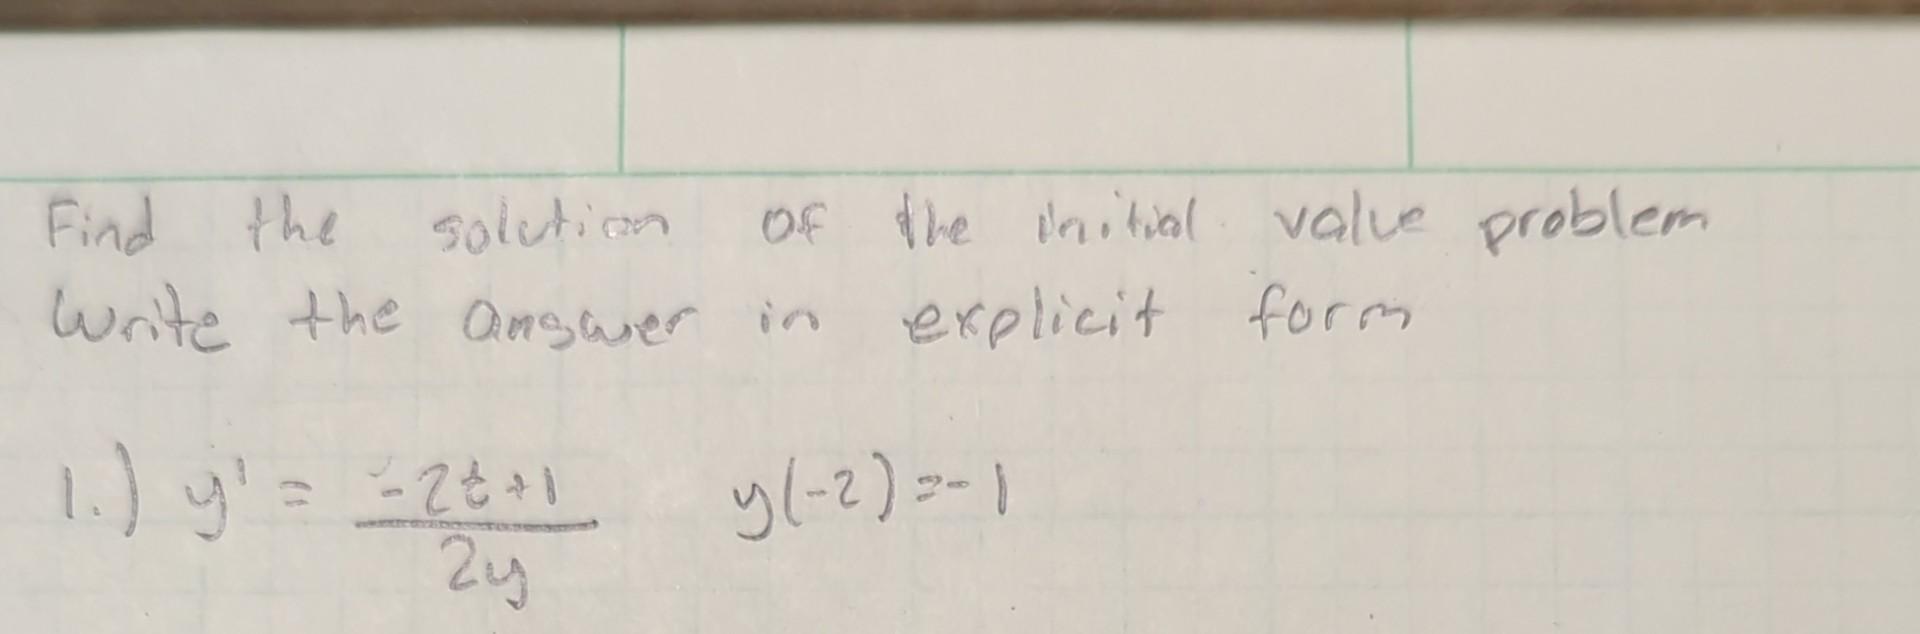 Find the solution of the initial value problem
Write the answer in explicit form
1.) y' = (-2t+1)/(2y) y(-2)=-1